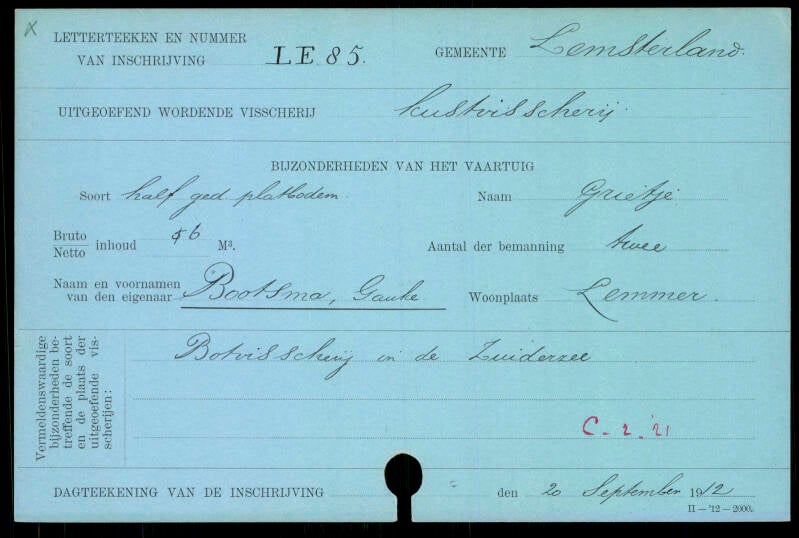 X
LETTERTEEKEN EN NUMMER
VAN INSCHRIJVING LE 85. GEMEENTE Lemsterland.
UITGEOEFEND WORDENDE VISSCHERIJ kustvisscherij
BIJZONDERHEDEN VAN HET VAARTUIG
Soort half ged platbodem. Naam Grietje
Bruto
Netto inhoud 6 M³. Aantal der bemanning twee
Naam en voornamen
van den eigenaar Bootsma, Gauke Woonplaats Lemmer.
Vermeldenswaardige
bijzonderheden be-
treffende de soort
en de plaats der
uitgeoefende vis-
scherijen:
Botvisscherij in de Zuiderzee
C. 2. '21
DAGTEEKENING VAN DE INSCHRIJVING den 20 September 1912
II — '12 — 2000.